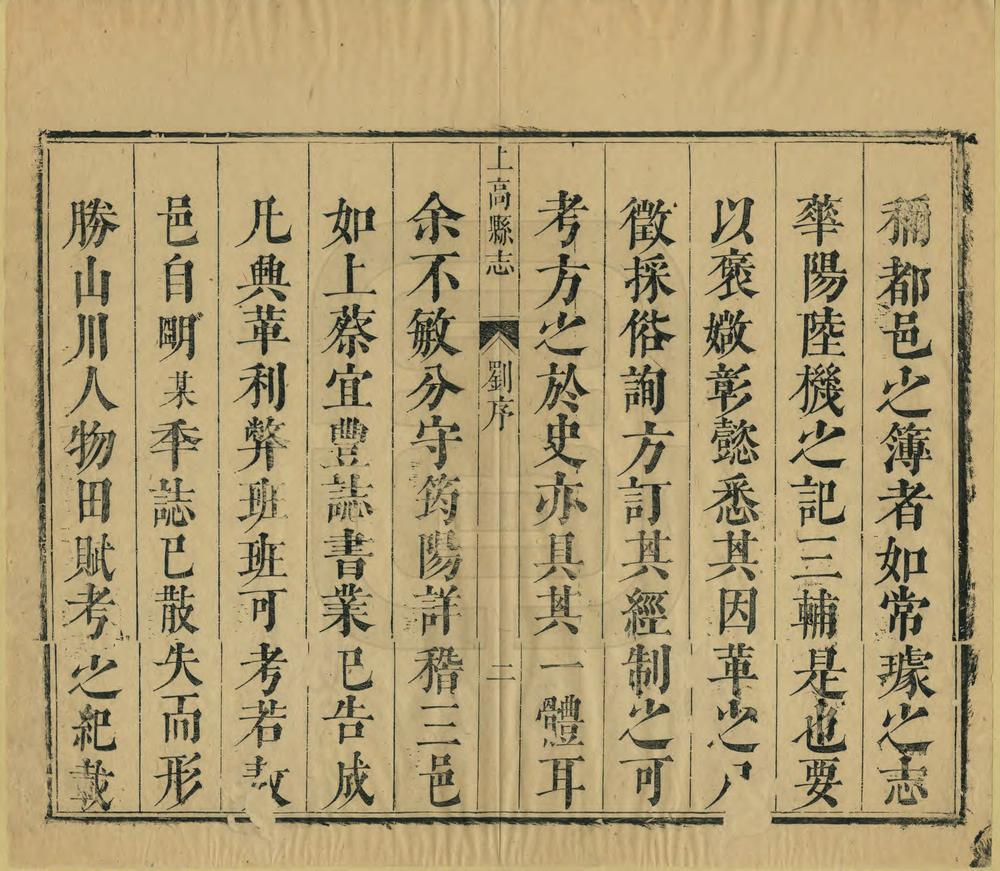 稱都邑之簿者如常璩之志
華陽陸機之記三輔是也要
以褒媺彰懿悉其因革之
徵採俗詢方訂其經制之可
考方之於史亦具其一體耳
上高縣志
劉序
二
余不敏分守筠陽詳稽三邑
如上蔡宜豐誌書業已告成
凡興革利弊班班可考若敖
邑自明某年誌已散失而形
勝山川人物田賦考之紀載